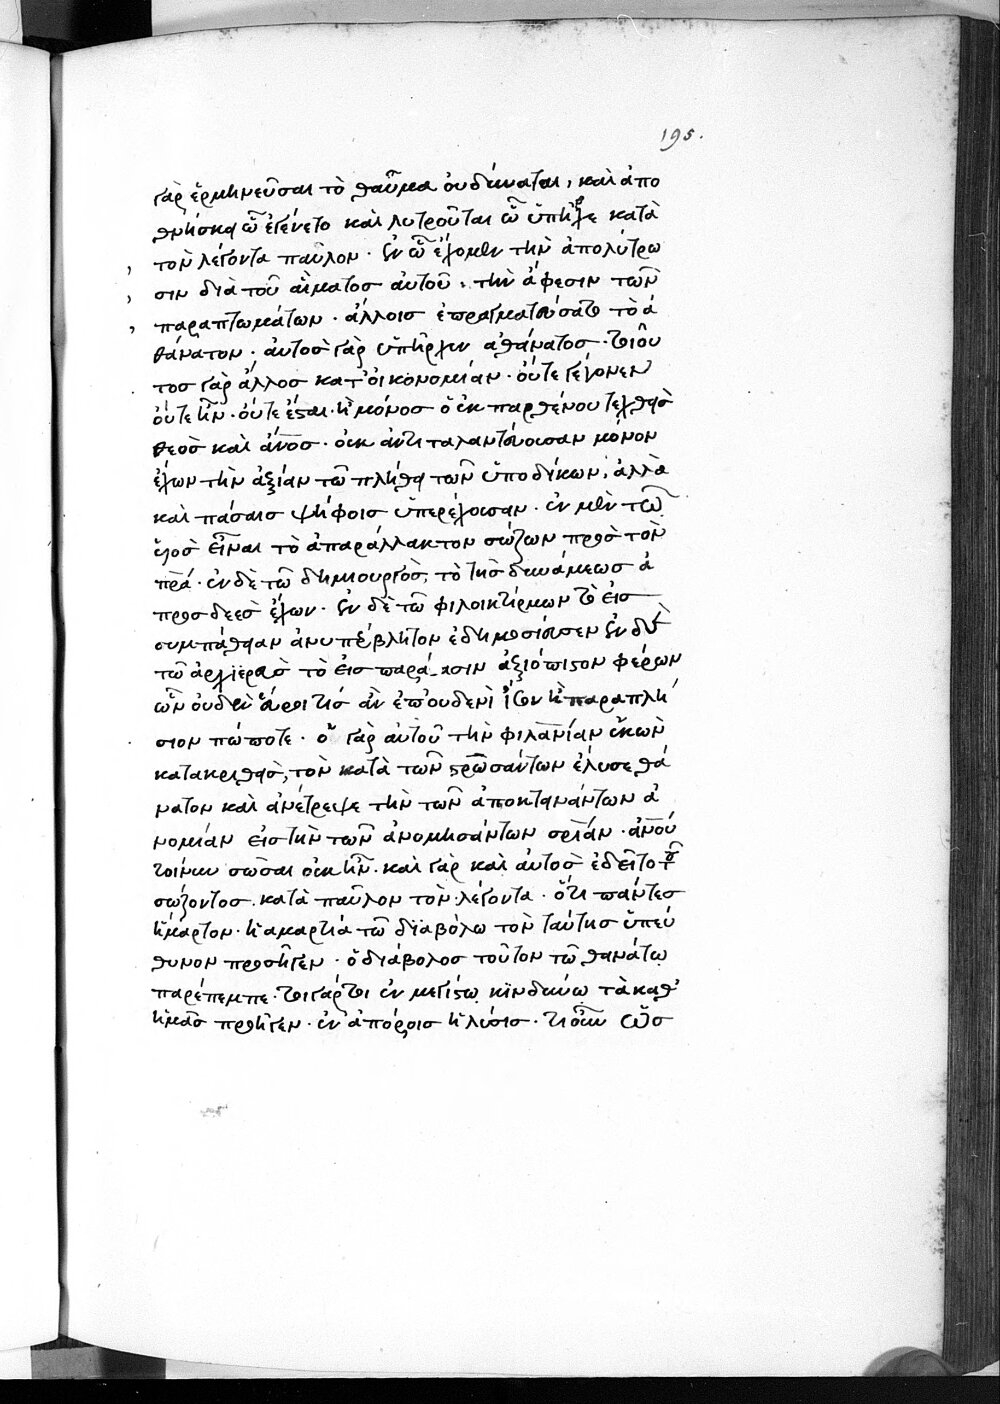 195.
γὰρ ἑρμηνεῦσαι τὸ θαῦμα οὐ δύναται, καὶ ἀπο
θνήσκει ὧ ἐγένετο καὶ λυτροῦται ὧ ὑπῆρξε κατὰ
τὸν λέγοντα παῦλον · ἐν ὧ ἔχομεν τὴν ἀπολύτρω
σιν διὰ τοῦ αἵματος αὐτοῦ · τὴν ἄφεσιν τῶν
παραπτωμάτων · ἄλλοις ἐπραγματεύσατο τὸ ἀ
θάνατον · αὐτὸς γὰρ ὑπῆρχεν ἀθάνατος · τοιοῦ
τος γὰρ ἄλλος κατ' οἰκονομίαν · οὔτε γέγονεν
οὔτε ἦν · οὔτε ἔσται · ἢ μόνος ὁ ἐκ παρθένου τεχθεὶς
θεὸς καὶ ἄνος · οὐκ ἀντιταλαντεύουσαν μόνον
ἔχων τὴν ἀξίαν τῶ πλήθει τῶν ὑποδίκων, ἀλλὰ
καὶ πάσαις ψήφοις ὑπερέχουσαν · ἐν μὲν τῶ
υἱὸς εἶναι τὸ ἀπαράλλακτον σώζων πρὸς τὸν
πρα · ἐν δὲ τῶ δημιουργὸς, τὸ τῆς δυνάμεως ἀ
προσδεὲς ἔχων · ἐν δὲ τῶ φιλοικτίρμων τὸ εἰς
συμπάθειαν ἀνυπέρβλητον ἐδημοσίευσεν ἐν δὲ
τῶ ἀρχιερεὺς τὸ εἰς παράκλησιν ἀξιόπιστον φέρων
ὧν οὐδὲν εὕροι τίς ἂν ἐπ' οὐδενὶ ἴσον ἢ παραπλή
σιον πώποτε · ὅρα γὰρ αὐτοῦ τὴν φιλανίαν ἑκὼν
κατακριθεὶς, τὸν κατὰ τῶν στρωσάντων ἔλυσε θά
νατον καὶ ἀνέτρεψε τὴν τῶν ἀποκτεινάντων ἀ
νομίαν εἰς τὴν τῶν ἀνομησάντων σρίαν · ἄνου
τοίνυν σῶσαι οὐκ ἦν · καὶ γὰρ καὶ αὐτὸς ἐδεῖτο τοῦ
σώζοντος · κατὰ παῦλον τὸν λέγοντα · ὅτι πάντες
ἥμαρτον · ἡ αμαρτία τῶ διαβόλω τὸν ταύτης ὑπεύ
θυνον προσῆγεν · ὁ διάβολος τοῦτον τῶ θανάτω
παρέπεμπε · τοιγάρτοι ἐν μεγίστω κινδύνω τὰ καθ'
ἡμᾶς προῆγεν · ἐν ἀπόροις ἡ λύσις · τί οὖν ὡς